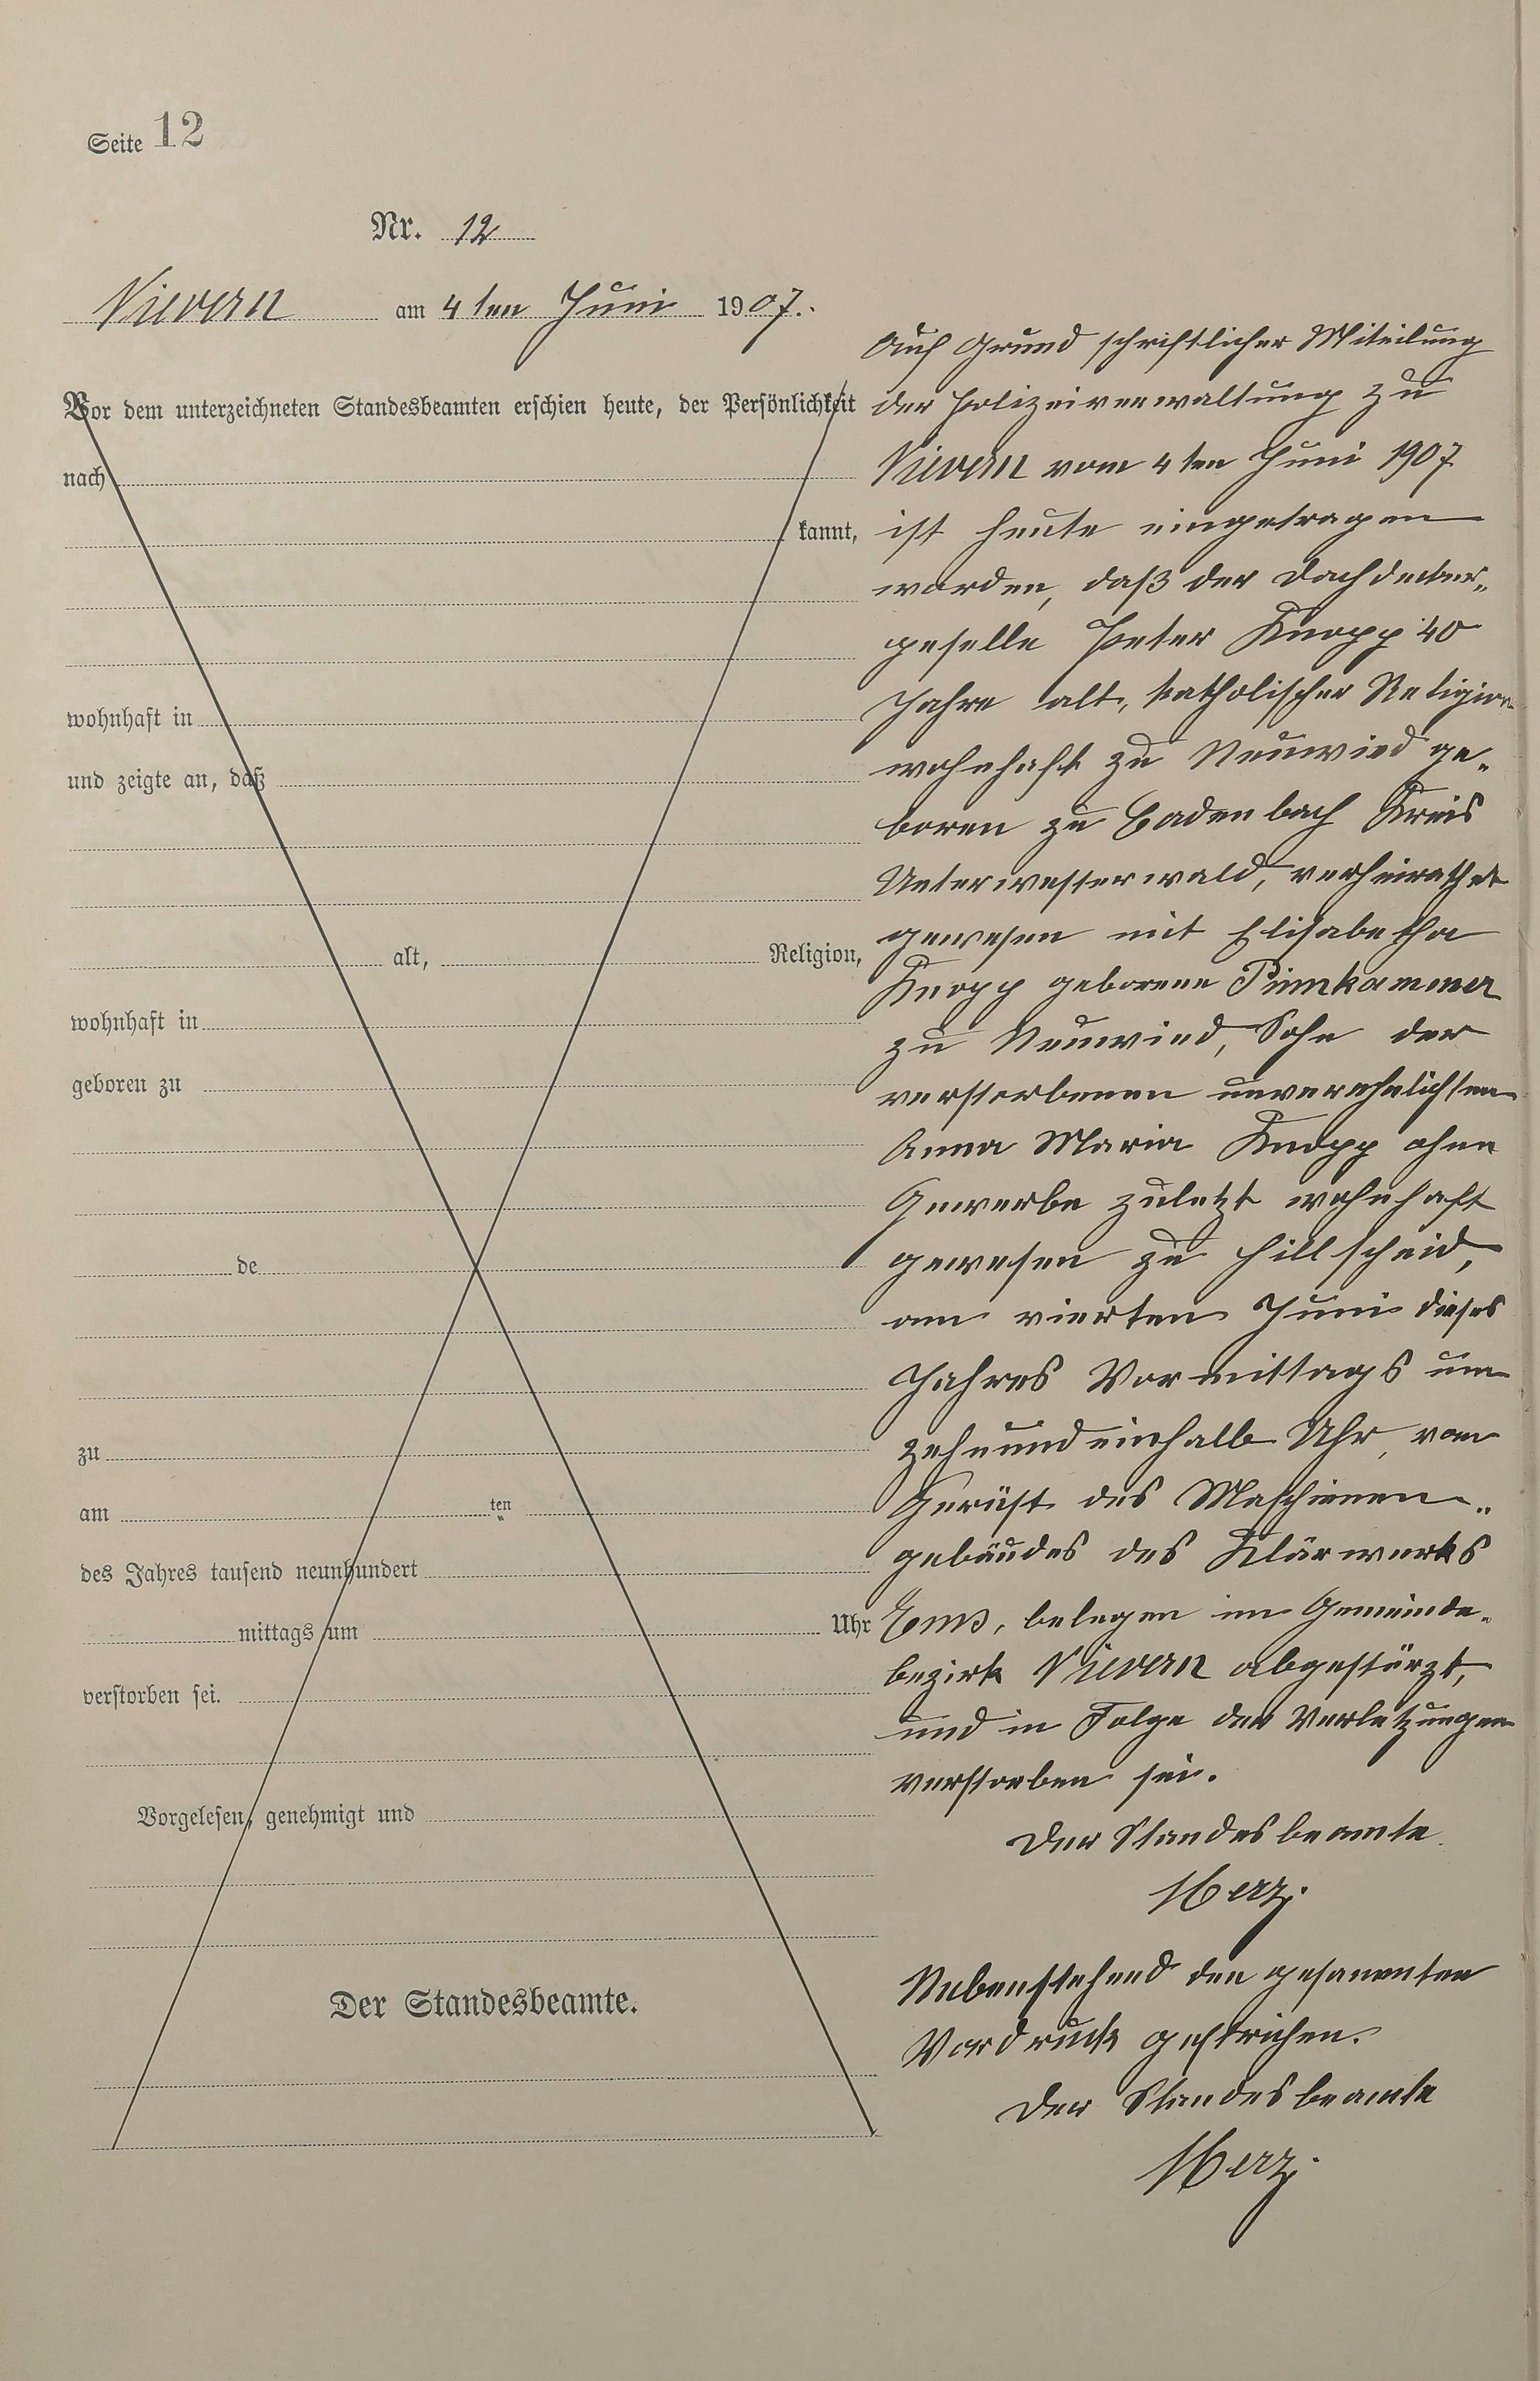 Seite 12
Nr. 12
Nievern am 4ten Juni 1907.
Vor dem unterzeichneten Standesbeamten erschien heute, der Persönlichkeit
nach
kannt,
wohnhaft in
und zeigte an, daß
alt, Religion,
wohnhaft in
geboren zu
de
zu
am ten
des Jahres tausend neunhundert
mittags um Uhr
verstorben sei.
Vorgelesen, genehmigt und
Der Standesbeamte.
Auf Grund schriftlicher Miteilung
der Polizeiverwaltung zu
Nievern vom 4ten Juni 1907
ist heute eingetragen
worden, daß der Dachdecker„
geselle Peter Knopp 40
Jahre alt, katholischer Religion
wohnhaft zu Neuwied ge„
boren zu Cadenbach Kreis
Unterwesterwald, verheirathet
gewesen mit Elisabetha
Knopp geborene Pinnkammer
zu Neuwied, Sohn der
verstorbenen unverehelichten
Anna Maria Knopp ohne
Gewerbe zuletzt wohnhaft
gewesen zu Hillscheid,
am vierten Juni dieses
Jahres Vormittags um
zehnundeinhalb Uhr, vom
Gerüst des Maschienen„
gebäudes des Klärwerks
Ems, belegen im Gemeinde„
bezirk Nievern abgestürzt,
und in Folge der Verletzungen
verstorben sei.
Der Standesbeamte
Merz
Nebenstehend den gesammten
Vordruck gestrichen.
Der Standesbeamte
Merz